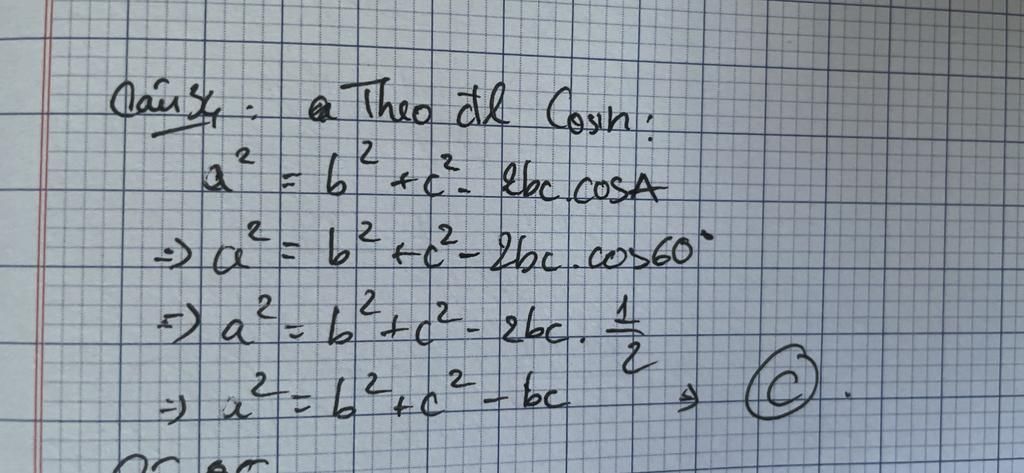 Câu 34: Theo đl Cosin:
a² = b² + c² - 2bc.cosA
=> a² = b² + c² - 2bc.cos60°
=> a² = b² + c² - 2bc.1/2
=> a² = b² + c² - bc => C.